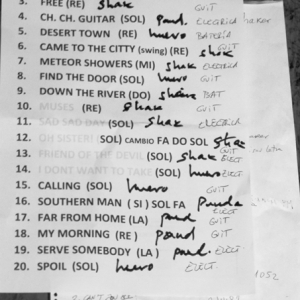 3. FREE (RE) shak GUIT
4. CH. CH. GUITAR (SOL) pand. ELECTRICA
5. DESERT TOWN (RE) huevo BATERÍA
6. CAME TO THE CITTY (swing) (RE) shak GUIT
7. METEOR SHOWERS (MI) shak ELECTRICA
8. FIND THE DOOR (SOL) huevo GUIT
9. DOWN THE RIVER (DO) BAT
10. MUSES (RE) shak GUIT
11. SAD SAD DAY (SOL) shak ELECTRICA
12. OH SISTER! (SOL) CAMBIO FA DO SOL shak
13. FRIEND OF THE DEVIL (SOL) shak ELECT
14. I DONT WANT TO TAKE (SOL) huevo ELECT
15. CALLING (SOL) huevo GUIT
16. SOUTHERN MAN ( SI ) SOL FA ELECT
17. FAR FROM HOME (LA) pand GUIT
18. MY MORNING (RE) pand GUIT
19. SERVE SOMEBODY (LA) pand. ELECT
20. SPOIL (SOL) huevo ELECT.
1052